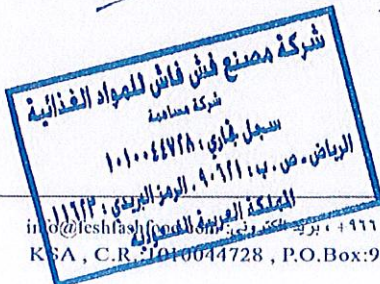 شركة مصنع فش فاش للمواد الغذائية
شركة مساهمة
سجل تجاري: ١٠١٠٠٤٤٧٢٨
الرياض - ص. ب: ٩٠٦٢١ - الرمز البريدي: ١١٦٢٣
المملكة العربية السعودية
+٩٦٦ ، بريد الكتروني: info@feshfashfood.com
KSA , C.R.:1010044728 , P.O.Box:9